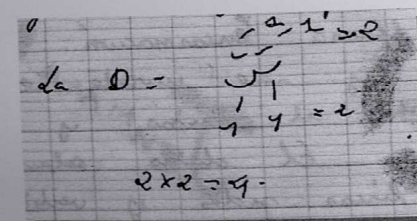 1 1 = 2
La D =
1 1 = 2
2 × 2 = 4.